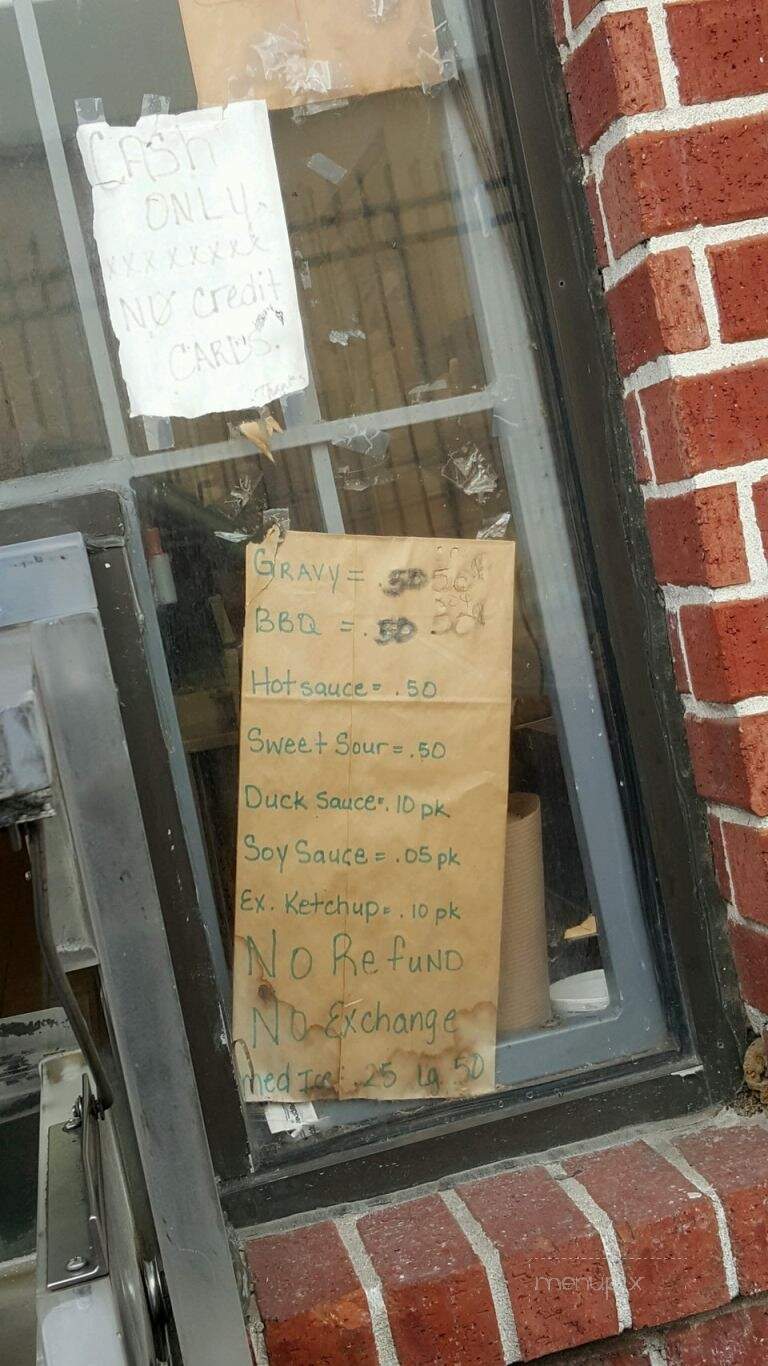 CASH
ONLY.
xxxxxxxx
NO Credit
CARDS.
Thanks
GRAVY = .50 50¢
BBQ = .50 50¢
Hot sauce = .50
Sweet Sour = .50
Duck Sauce = .10 pk
Soy Sauce = .05 pk
Ex. Ketchup = .10 pk
No RefuND
No Exchange
med Ice .25 Lg 50
menupix